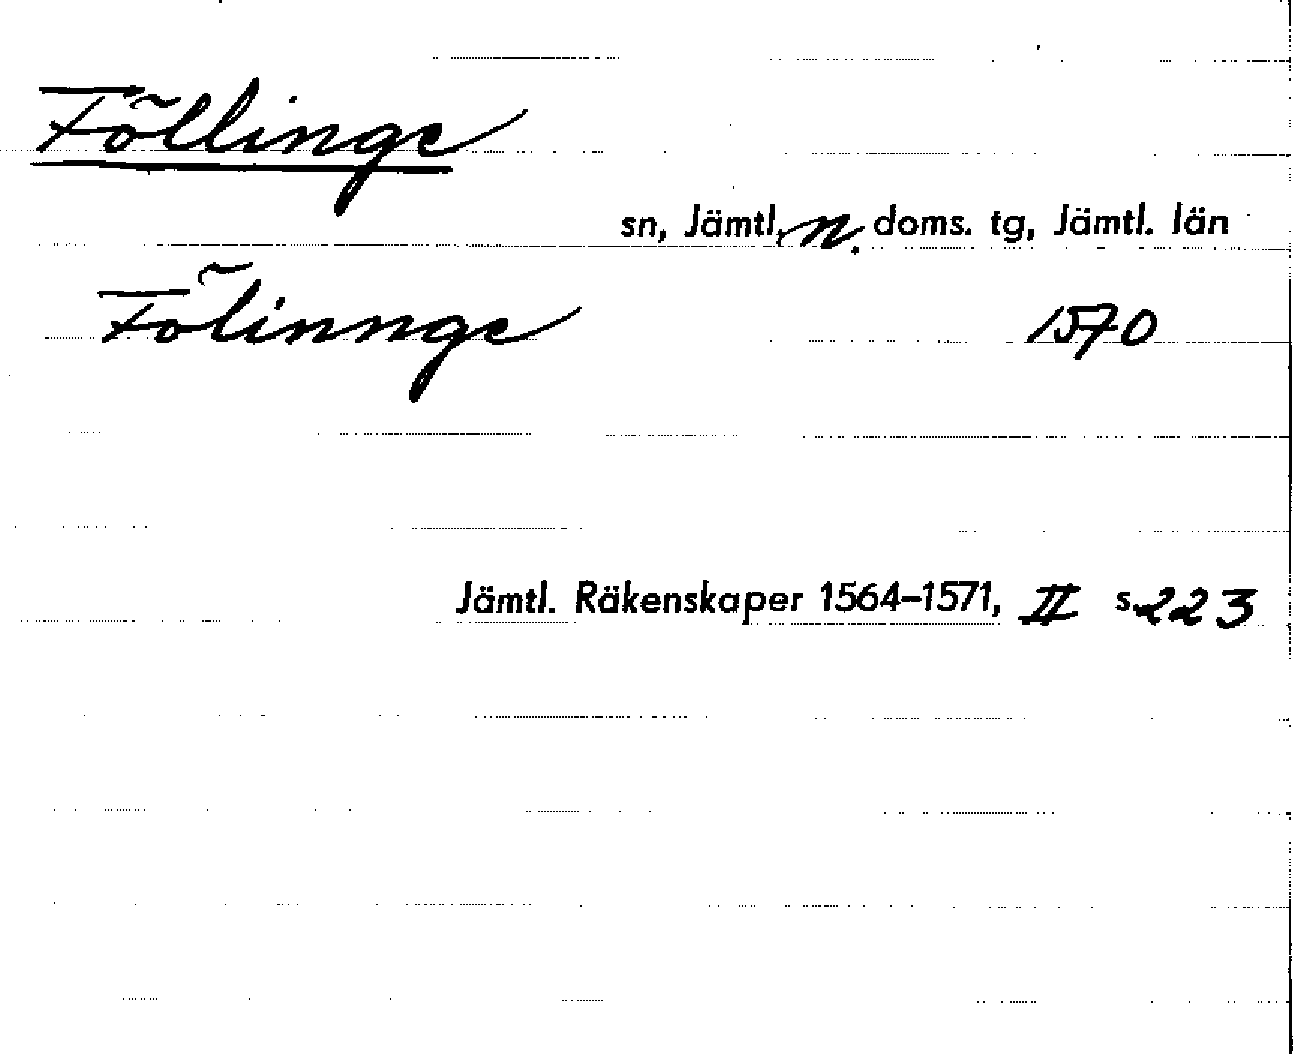 Föllinge
sn, Jämtl, n. doms. tg, Jämtl. län
Fölinnge 1570
Jämtl. Räkenskaper 1564-1571, II s. 223